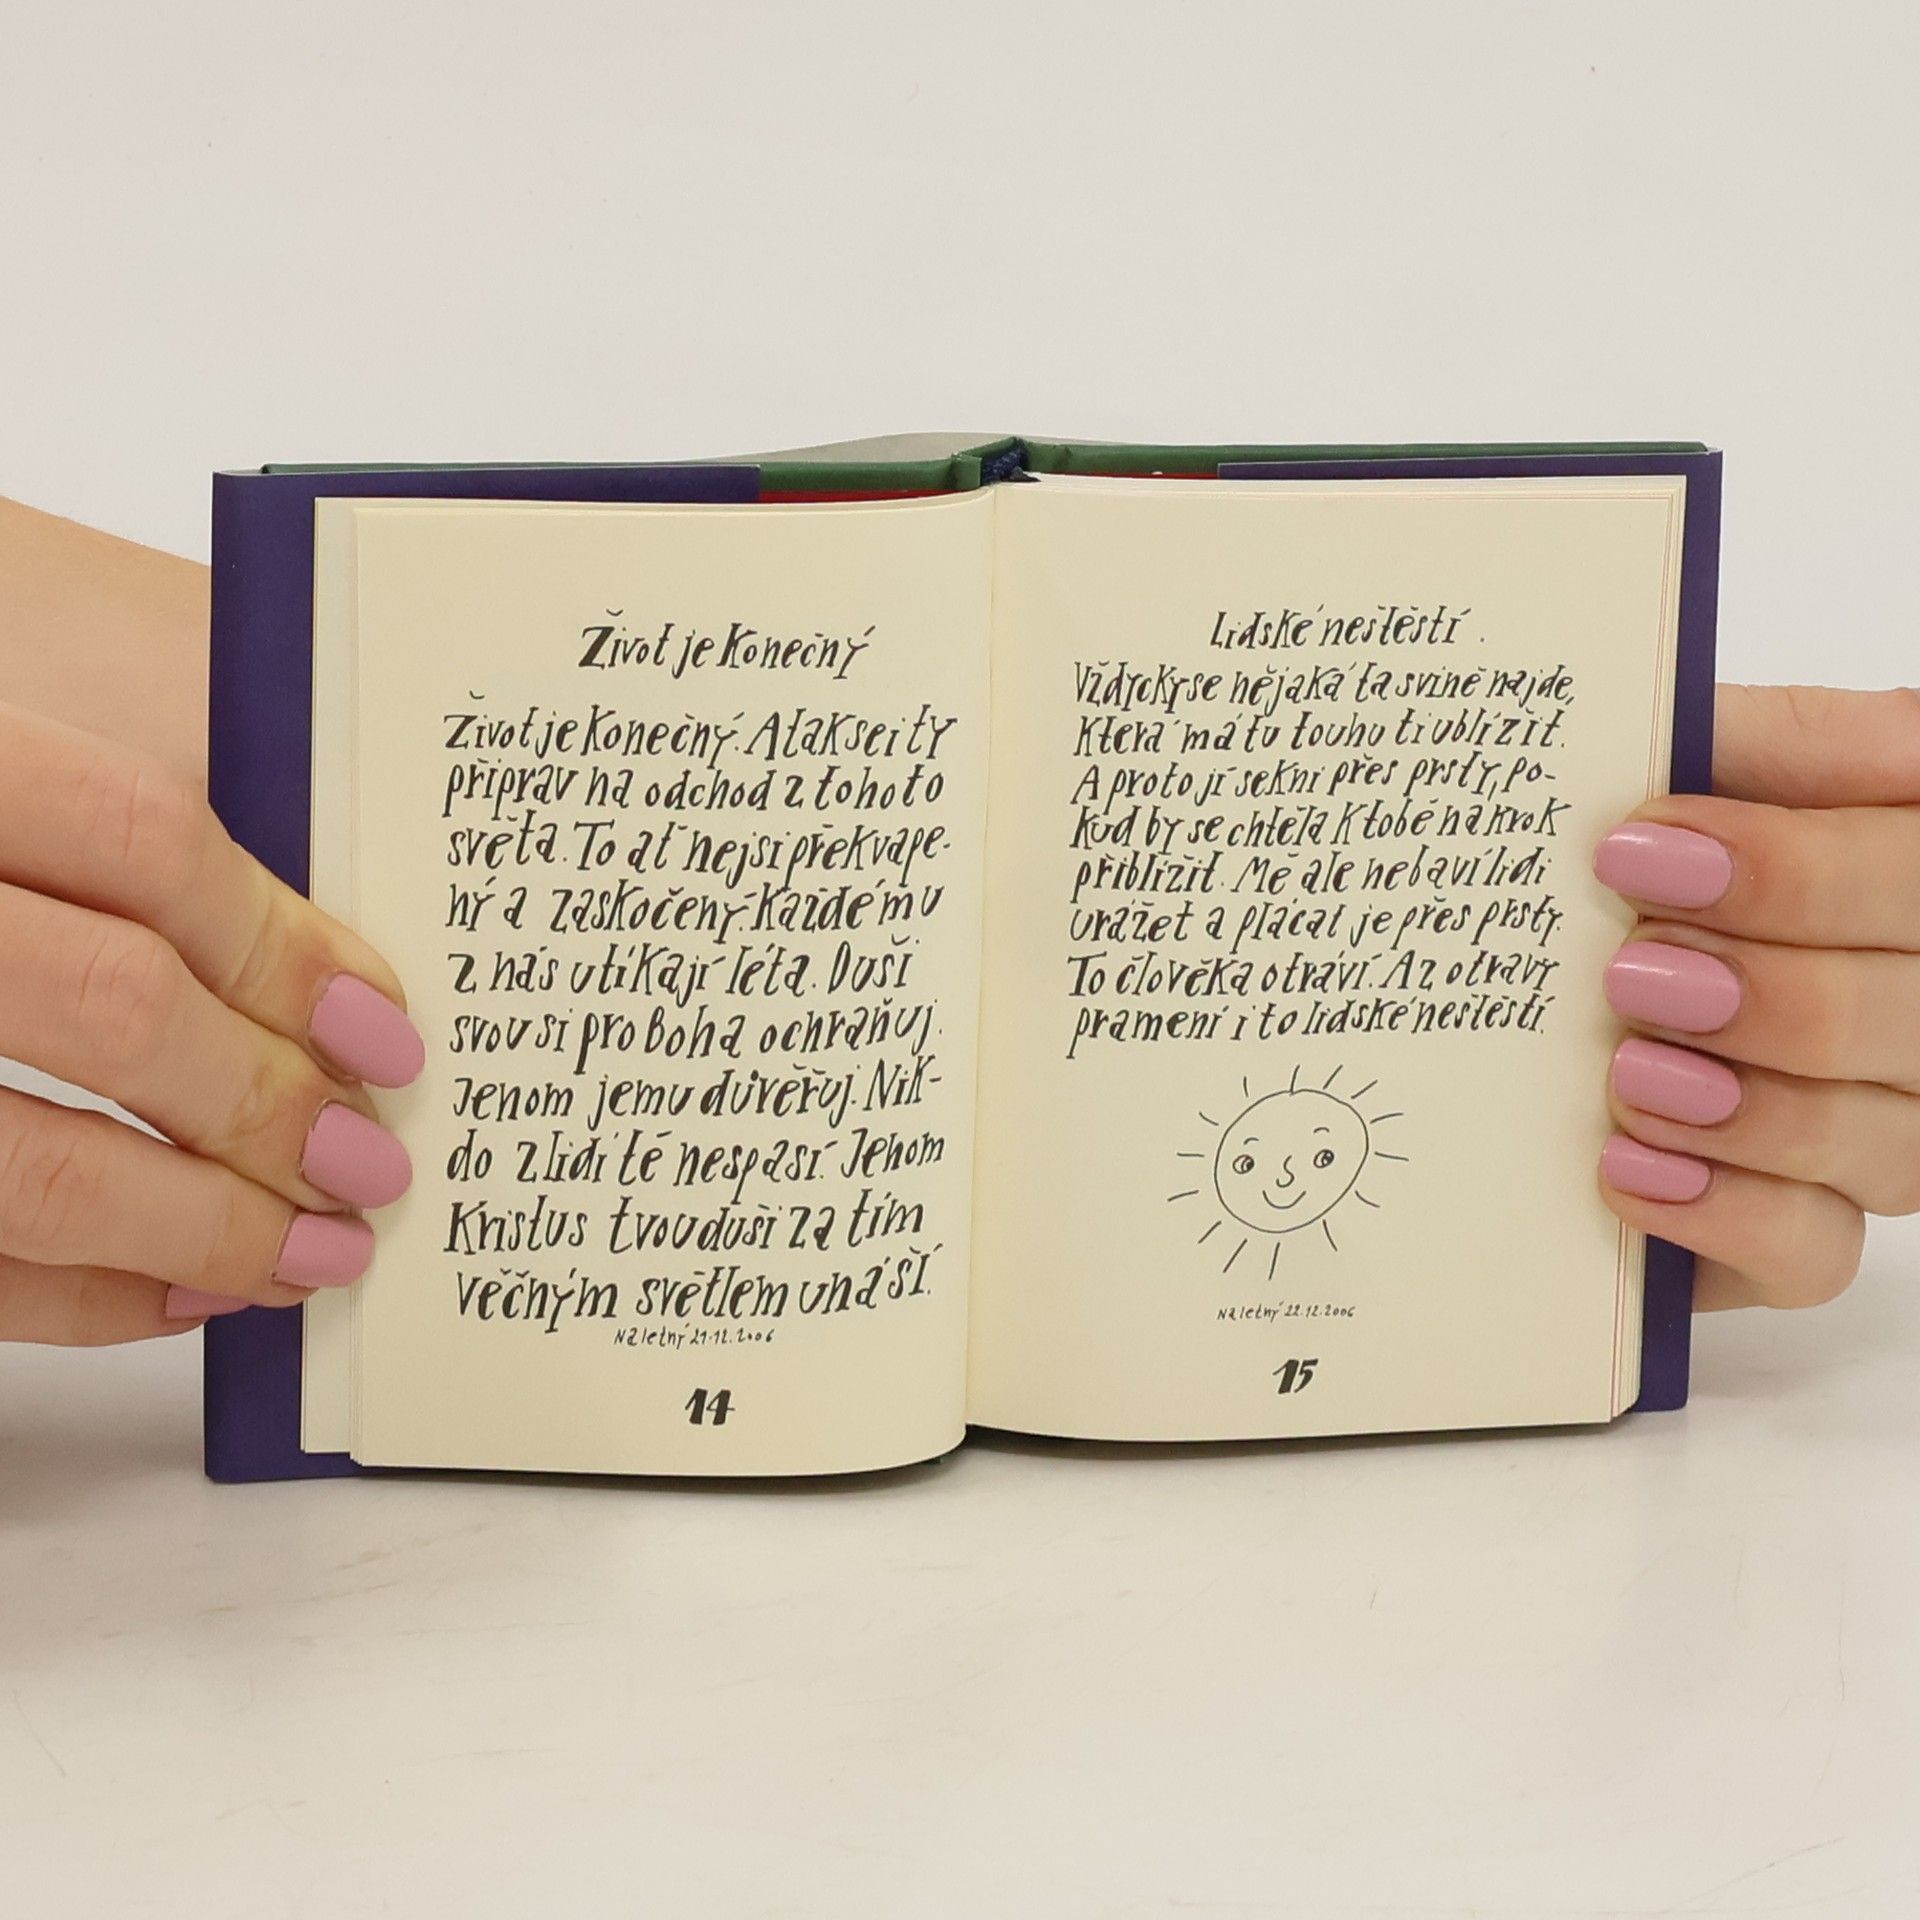 Život je konečný
Život je konečný. A tak se i ty
připrav na odchod z tohoto
světa. To ať nejsi překvape-
ný a zaskočený. Každému
z nás utíkají léta. Duši
svou si pro Boha ochraňuj.
Jenom jemu důvěřuj. Nik-
do z lidi tě nespasí. Jenom
Kristus tvou duši za tím
věčným světlem unáší.
Na letný 21.12.2006
14
Lidské neštěstí.
Vždycky se nějaká ta svině najde,
která má tu touhu ti ublížit.
A proto jí sekni přes prsty, po-
kud by se chtěla k tobě na krok
přiblížit. Mě ale nebaví lidi
urážet a plácat je přes prsty.
To člověka otráví. A z otravy
pramení i to lidské neštěstí.
Na letný 22.12.2006
15